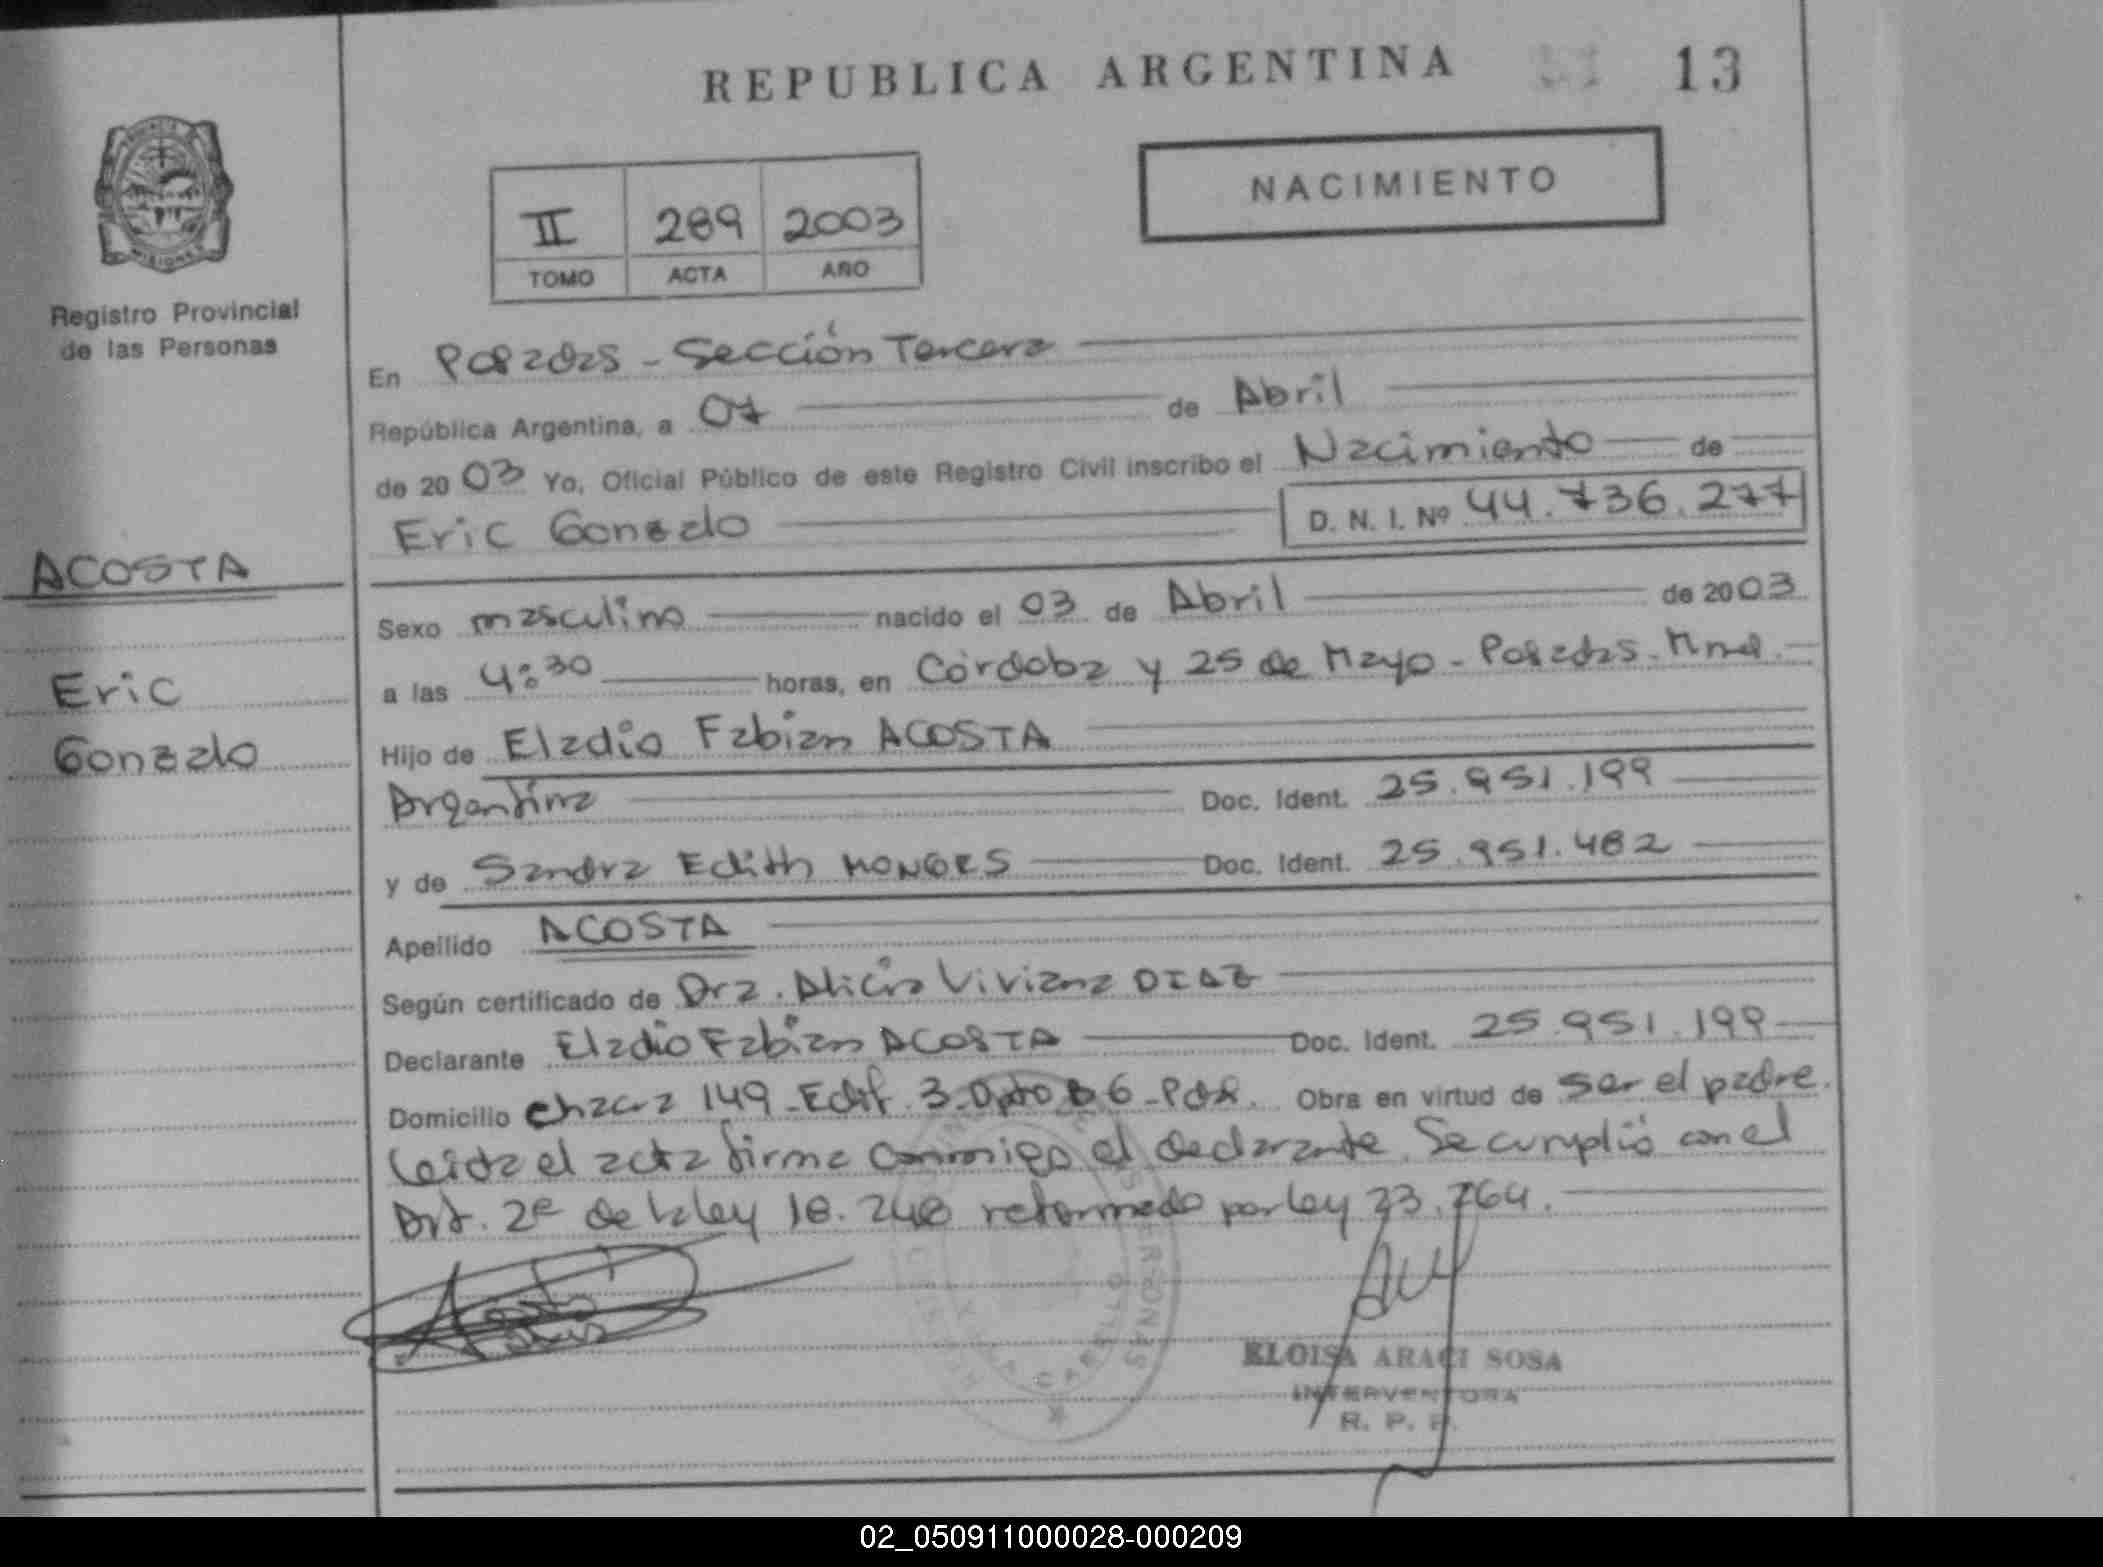 REPUBLICA ARGENTINA 13
NACIMIENTO
II 289 2003
TOMO ACTA AÑO
Registro Provincial
de las Personas
ACOSTA
Eric
Gonzalo
En Posadas - Sección Tercera
República Argentina, a 07 de Abril
de 2003 Yo, Oficial Público de este Registro Civil inscribo el Nacimiento de
Eric Gonzalo D. N. I. Nº 44.736.277
Sexo masculino nacido el 03 de Abril de 2003
a las 4:30 horas, en Córdoba y 25 de Mayo - Posadas - Mnes.
Hijo de Eladio Fabian ACOSTA
Argentina Doc. Ident. 25.951.199
y de Sandra Edith MONGES Doc. Ident. 25.951.482
Apellido ACOSTA
Según certificado de Dra. Alicia Viviana DIAZ
Declarante Eladio Fabian ACOSTA Doc. Ident. 25.951.199
Domicilio Chacra 149 - Edif. 3 - Dpto 6 - Pdas. Obra en virtud de ser el padre.
Leída el acta firma conmigo el declarante. Se cumplió con el
Art. 2º de la ley 18.248 reformado por ley 23.264.
ELOISA ARACI SOSA
INTERVENTORA
R. P. P.
02_050911000028-000209